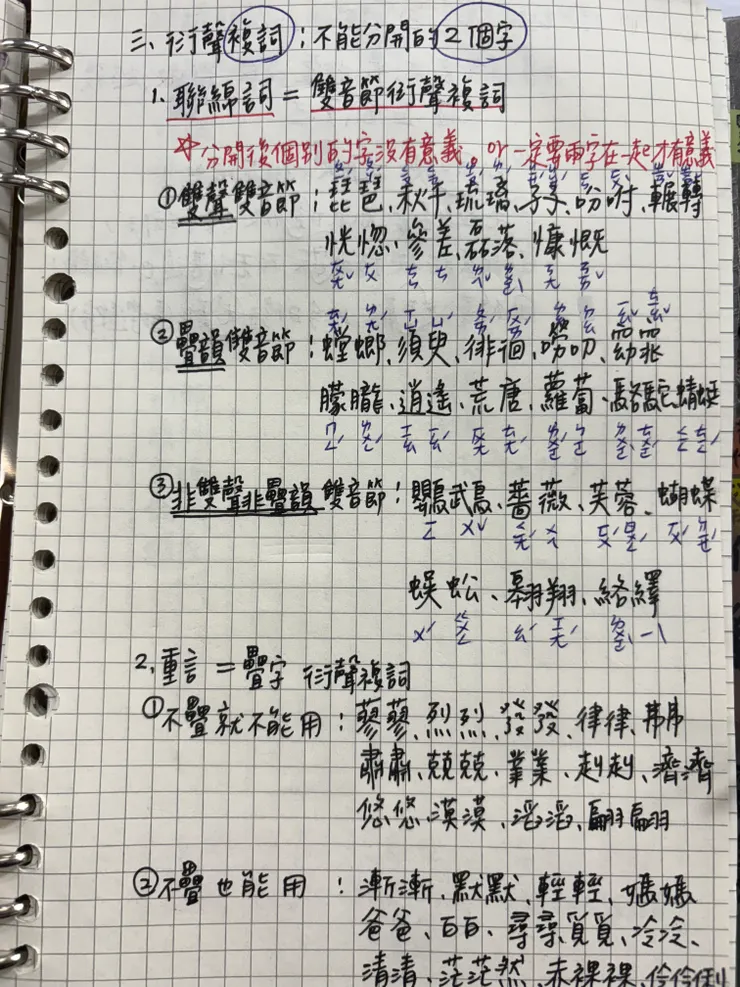 三、衍聲複詞：不能分開的2個字
1. 聯綿詞 = 雙音節衍聲複詞
☆分開後個別的字沒有意義。or 一定要兩字在一起才有意義
①雙聲雙音節：琵琶、秋千、琉璃、孑孓、吩咐、輾轉
恍惚、參差、磊落、慷慨
ㄏㄨㄤˇ ㄏㄨ ㄘㄣ ㄘ ㄌㄟˇ ㄌㄨㄛˋ ㄎㄤ ㄎㄞˇ
②疊韻雙音節：螳螂、須臾、徘徊、嘮叨、窈窕
朦朧、逍遙、荒唐、蘿蔔、駱駝、蜻蜓
ㄇㄥˊ ㄌㄨㄥˊ ㄒㄧㄠ ㄧㄠˊ ㄏㄨㄤ ㄊㄤˊ ㄌㄨㄛˊ ㄌㄨㄛˋ ㄊㄨㄛˊ ㄑㄧㄥ ㄊㄧㄥˊ
③非雙聲非疊韻雙音節：鸚鵡、薔薇、芙蓉、蝴蝶
ㄧㄥ ㄨˇ ㄑㄧㄤˊ ㄨㄟˊ ㄈㄨˊ ㄖㄨㄥˊ ㄏㄨˊ ㄉㄧㄝˊ
蜈蚣、翱翔、絡繹
ㄨˊ ㄍㄨㄥ ㄠˊ ㄒㄧㄤˊ ㄌㄨㄛˋ ㄧˋ
2. 重言 = 疊字 衍聲複詞
①不疊就不能用：蓼蓼、烈烈、發發、律律、弗弗
肅肅、兢兢、業業、赳赳、濟濟
悠悠、漠漠、滔滔、翩翩
②不疊也能用：漸漸、默默、輕輕、媽媽
爸爸、白白、尋尋覓覓、冷冷、
清清、茫茫然、赤裸裸、伶伶俐